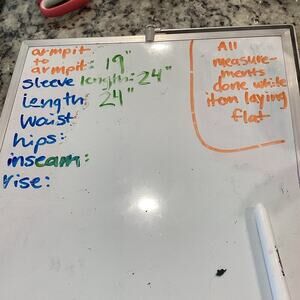 armpit
to
armpit: 19"
Sleeve length: 24"
length: 24"
Waist
hips:
inseam:
rise:
All
measure-
ments
done while
item laying
flat